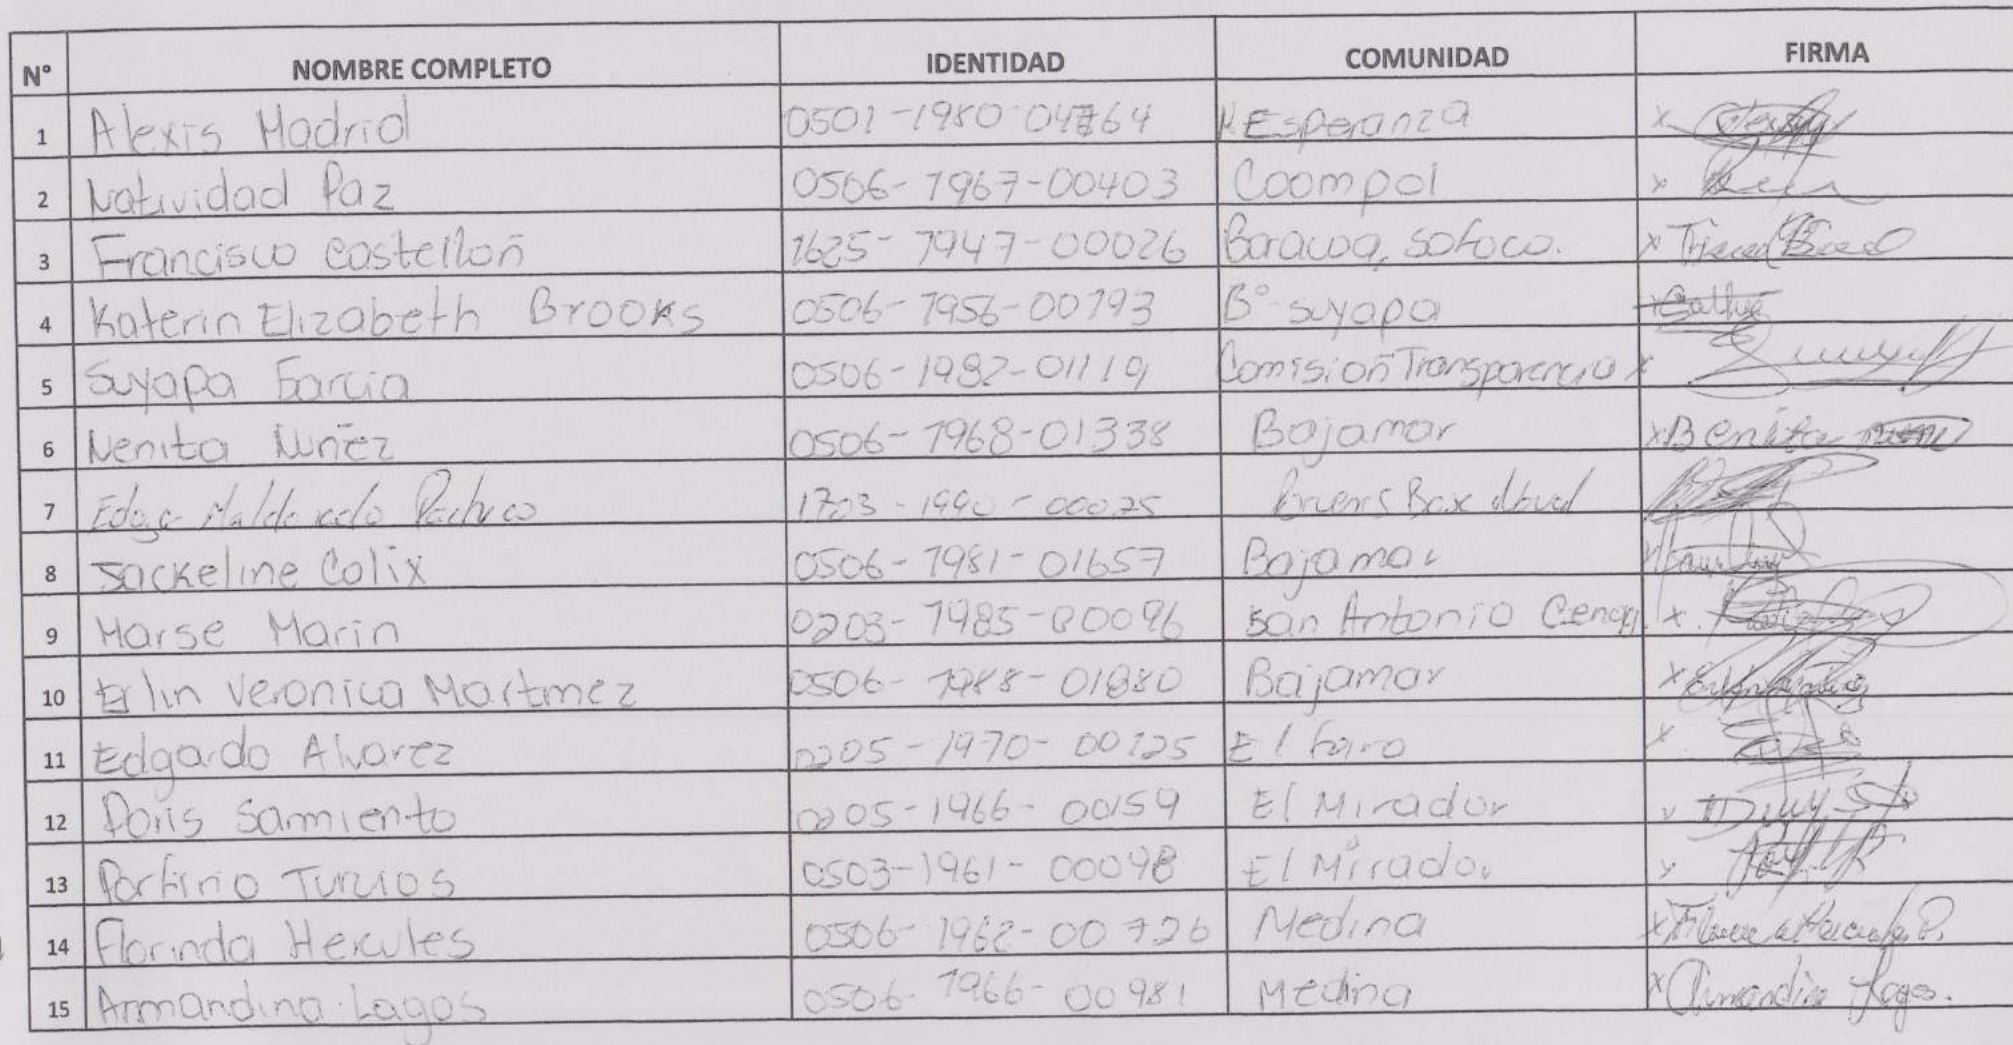 N° NOMBRE COMPLETO IDENTIDAD COMUNIDAD FIRMA
1 Alexis Madrid 0501-1980-04764 N. Esperanza x
2 Natividad Paz 0506-1967-00403 Coompol x
3 Francisco Castellón 1625-1947-00026 Baracoa, x
4 Katerin Elizabeth Brooks 0506-1956-00193 B° suyapa
5 Suyapa Garcia 0506-1982-01119 Comisión Transparencia x
6 Nenita Nuñez 0506-1968-01338 Bajamar x Benita
7 Maldonado Pacheco 1703-1990-00025
8 Jackeline Colix 0506-1981-01657 Bajamar x
9 Marse Marin 0203-1985-00096 San Antonio x
10 Erlin Veronica Martinez 0506-1988-01880 Bajamar x
11 Edgardo Alvarez 0205-1970-00125 El faro x
12 Doris Sarmiento 0205-1966-00159 El Mirador x
13 Porfirio Turcios 0503-1961-00098 El Mirador x
14 Florinda Hercules 0506-1962-00726 Medina x
15 Armandina Lagos 0506-1966-00981 Medina x Armandina Lagos.